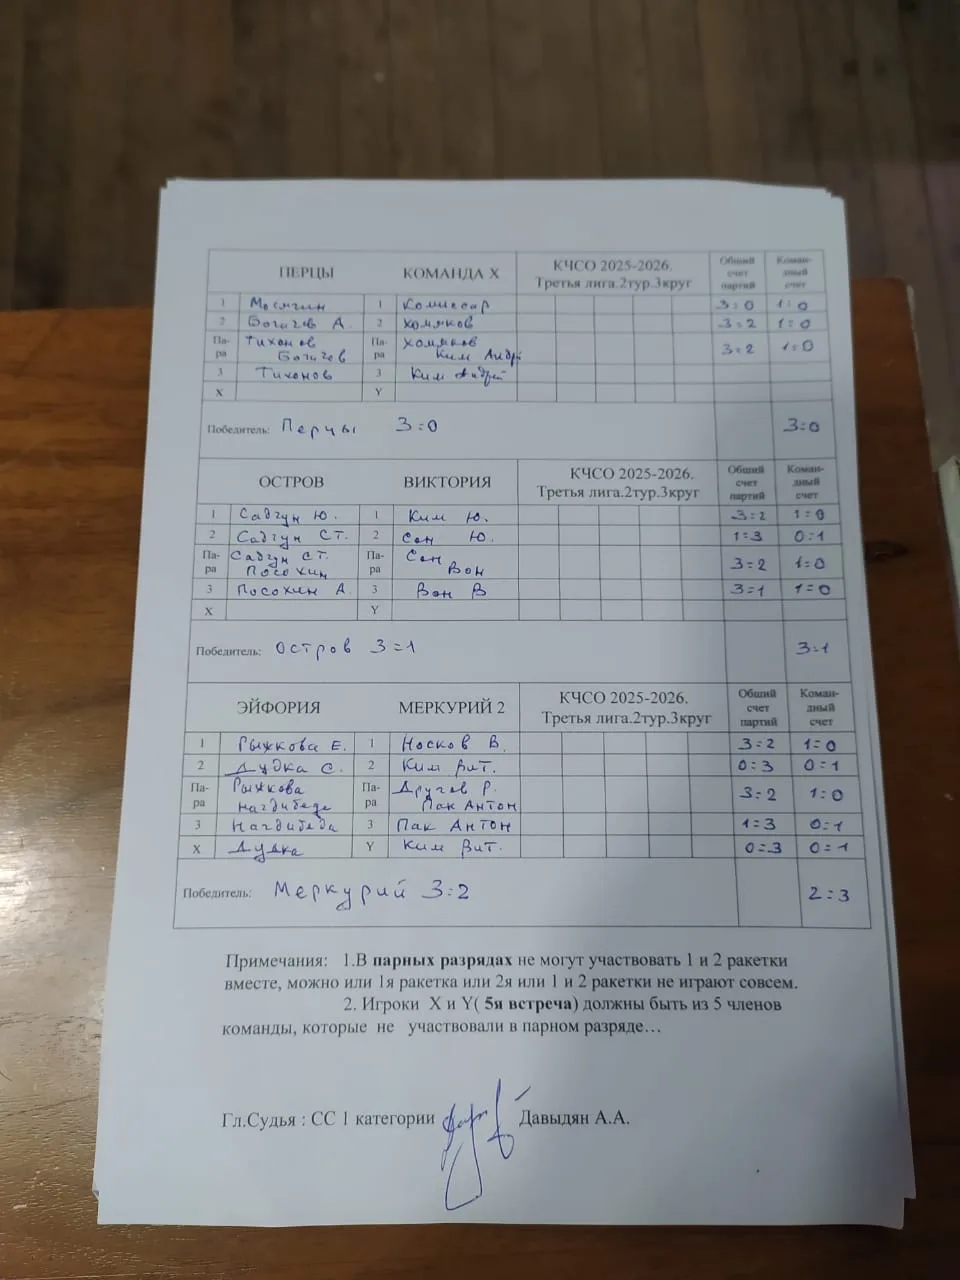 ПЕРЦЫ КОМАНДА X КЧСО 2025-2026. Третья лига.2тур.3круг Общий счет партий Коман-дный счет
1 Мосягин 1 Комиссар 3=0 1=0
2 Богачев А. 2 Хомяков 3=2 1=0
Па-ра Тихонов Богачев Па-ра Хомяков Ким Андрей 3=2 1=0
3 Тихонов 3 Ким Андрей
X Y
Победитель: Перцы 3=0 3=0
ОСТРОВ ВИКТОРИЯ КЧСО 2025-2026. Третья лига.2тур.3круг Общий счет партий Коман-дный счет
1 Садгун Ю. 1 Ким Ю. 3=2 1=0
2 Садгун СТ. 2 Сон Ю. 1=3 0=1
Па-ра Садгун СТ. Посохин Па-ра Сон Вон 3=2 1=0
3 Посохин А 3 Вон В 3=1 1=0
X Y
Победитель: Остров 3=1 3=1
ЭЙФОРИЯ МЕРКУРИЙ 2 КЧСО 2025-2026. Третья лига.2тур.3круг Общий счет партий Коман-дный счет
1 Рыжкова Е. 1 Носков В. 3=2 1=0
2 Дудка С. 2 Ким Вит. 0=3 0=1
Па-ра Рыжкова Нагдибеда Па-ра Другов Р. Пак Антон 3=2 1=0
3 Нагдибеда 3 Пак Антон 1=3 0=1
X Дудка Y Ким Вит. 0=3 0=1
Победитель: Меркурий 3=2 2=3
Примечания: 1.В парных разрядах не могут участвовать 1 и 2 ракетки
вместе, можно или 1я ракетка или 2я или 1 и 2 ракетки не играют совсем.
2. Игроки X и Y( 5я встреча) должны быть из 5 членов
команды, которые не участвовали в парном разряде…
Гл.Судья : СС 1 категории Давыдян А.А.